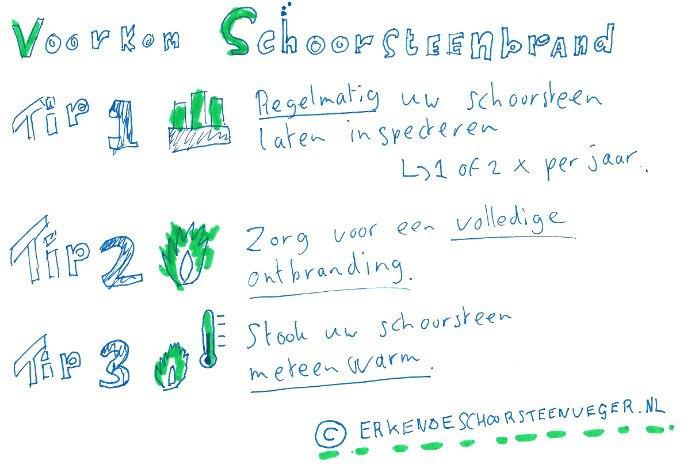 Voorkom Schoorsteenbrand
Tip 1
Regelmatig uw schoorsteen
laten inspecteren
↳1 of 2 x per jaar.
Tip 2
Zorg voor een volledige
ontbranding.
Tip 3
Stook uw schoorsteen
meteen warm.
© ERKENDESCHOORSTEENVEGER.NL